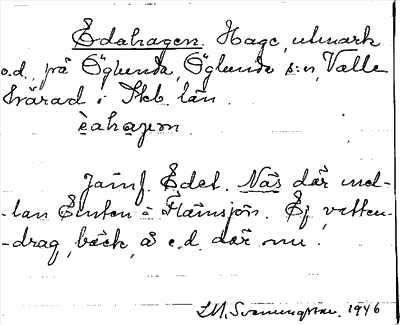 Edahagen. Hage, utmark
o.d. på Öglunda, Öglunda s:n, Valle
härad i Skb. län.
èahagem
Jämf. Edet. Näs där mel-
-lan Emten o Flämsjön. Ej vatten-
-drag, bäck, å e.d. där nu.
1946